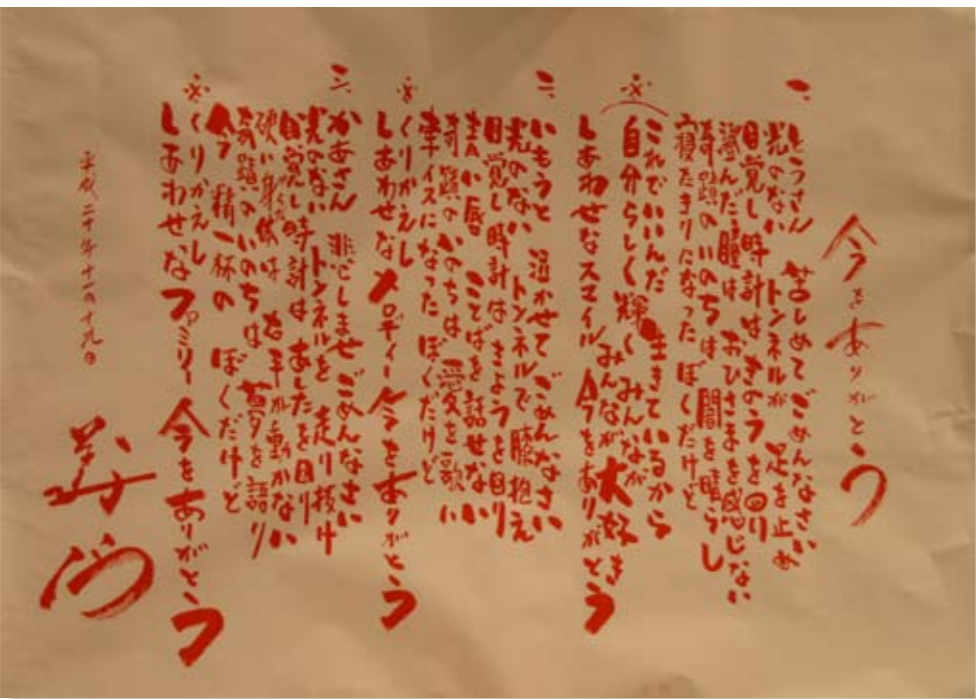 今をありがとう
一、
とうさん 苦しめて ごめんなさい
光のない トンネルが 足を止め
目覚し時計は きのうを回り
澄んだ瞳は おひさまを感じない
奇蹟の いのちは 闇を晴らし
寝たきりになった ぼくだけど
※
これでいいんだ 生きているから
自分らしく輝く みんなが大好き
しあわせなスマイル 今をありがとう
二、
いもうと 泣かせて ごめんなさい
光のない トンネルで 膝抱え
目覚し時計は きょうを回り
ことばを 話せない
奇蹟の いのちは 愛を歌い
車イスになった ぼくだけど
※くりかえし
しあわせな メロディー 今をありがとう
三、
かあさん 悲しませ ごめんなさい
光のない トンネルを 走り抜け
目覚し時計は あしたを回り
硬い身体は 右手が動かない
奇蹟の いのちは 夢を語り
今 精一杯の ぼくだけど
※くりかえし
しあわせな ファミリー 今をありがとう
平成二十年十一月十九日